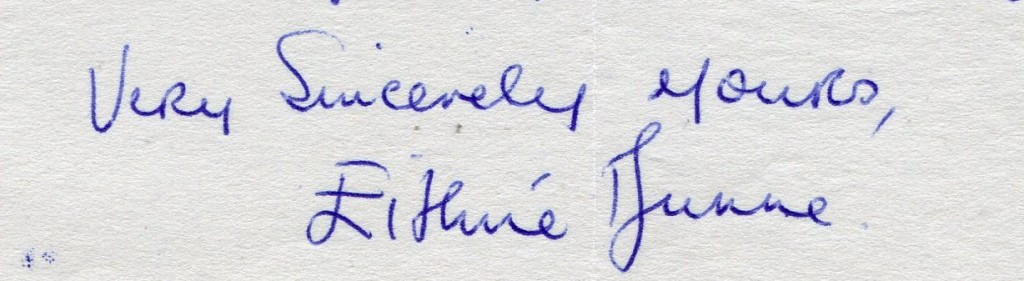 Very Sincerely Yours,
Eithne Dunne